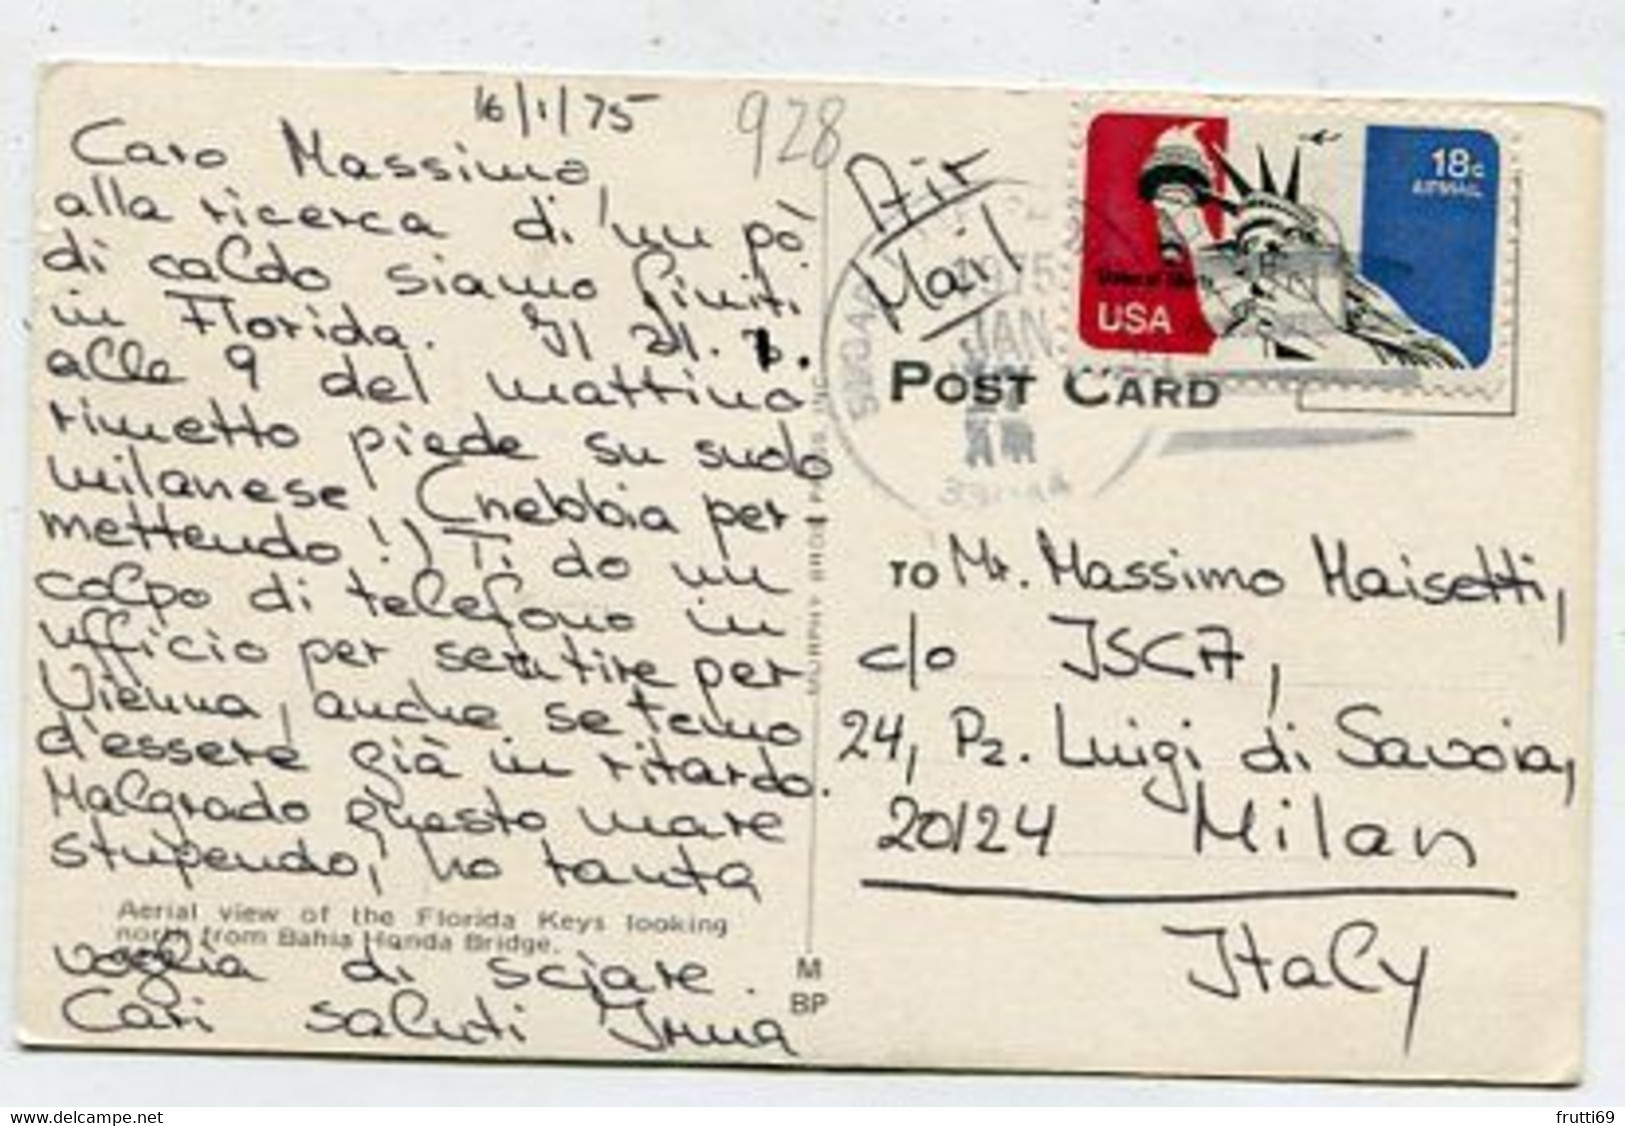 16/1/75
928
Caro Massimo,
alla ricerca di un pò
di caldo siamo finiti
in Florida. Il 21. 1.
alle 9 del mattino
rimetto piede su suolo
milanese (nebbia per
mettendo!) Ti do un
colpo di telefono in
ufficio per sentire per
Vienna, anche se temo
d'essere già in ritardo.
Malgrado questo mare
stupendo, ho tanta
Aerial view of the Florida Keys looking
north from Bahia Honda Bridge.
voglia di sciare.
Cari saluti Irma
M
BP
Air
Mail
18c
AIRMAIL
USA
1975
JAN
POST CARD
TO Mr. Massimo Maisetti,
c/o ISCA,
24, Pz. Luigi di Savoia,
20124 Milan
Italy
www.delcampe.net
frutti69